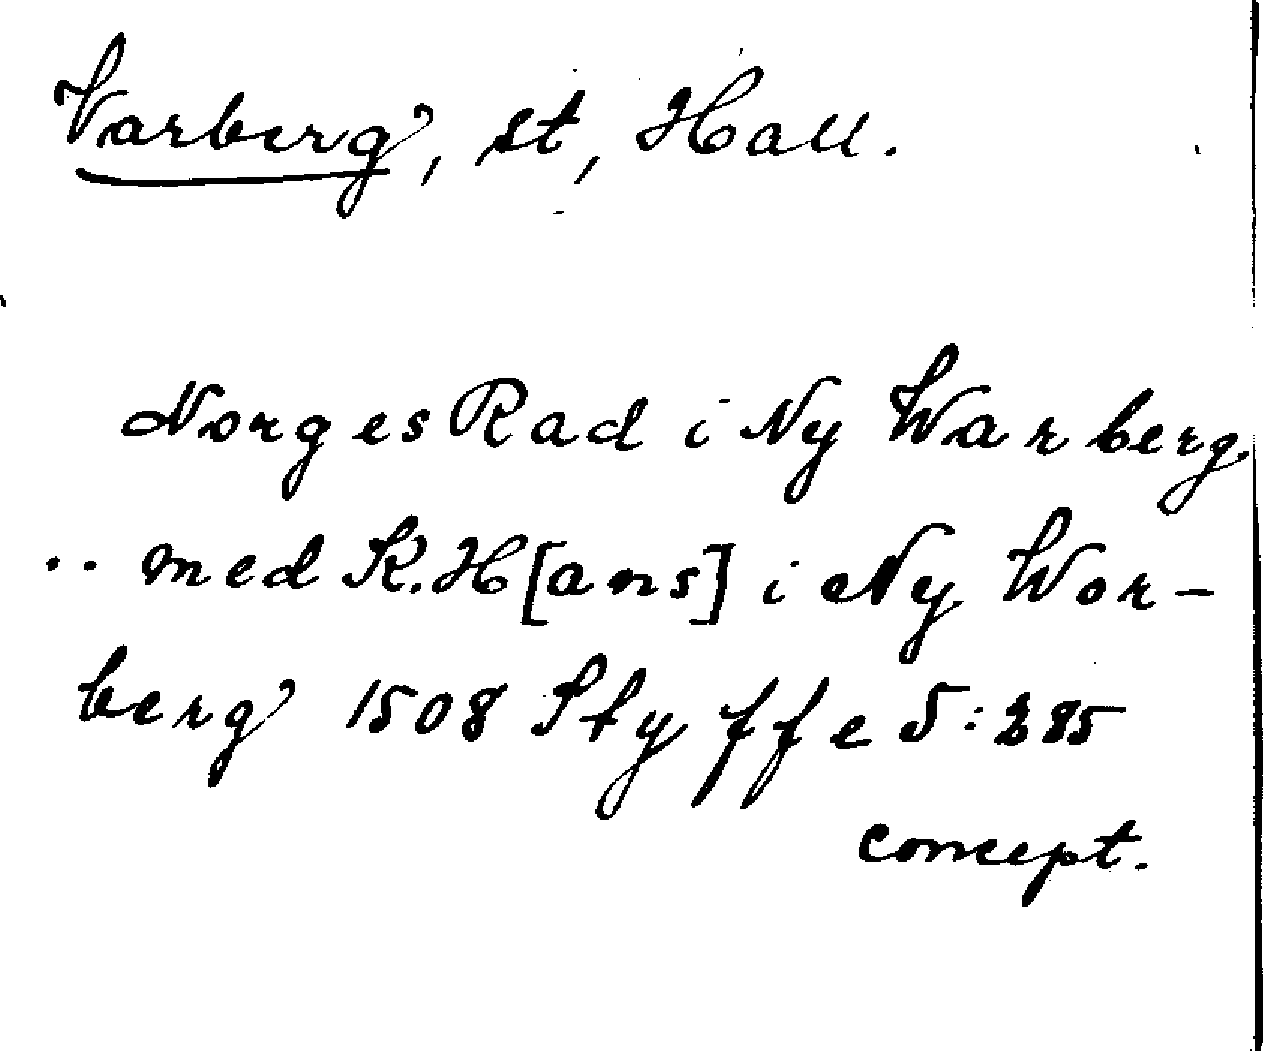 Varberg, st, Hall.
Norges Rad i Ny Warberg.
.. med K. H[ans] i Ny Wor-
berg 1508 Styffe 5:285
concept.